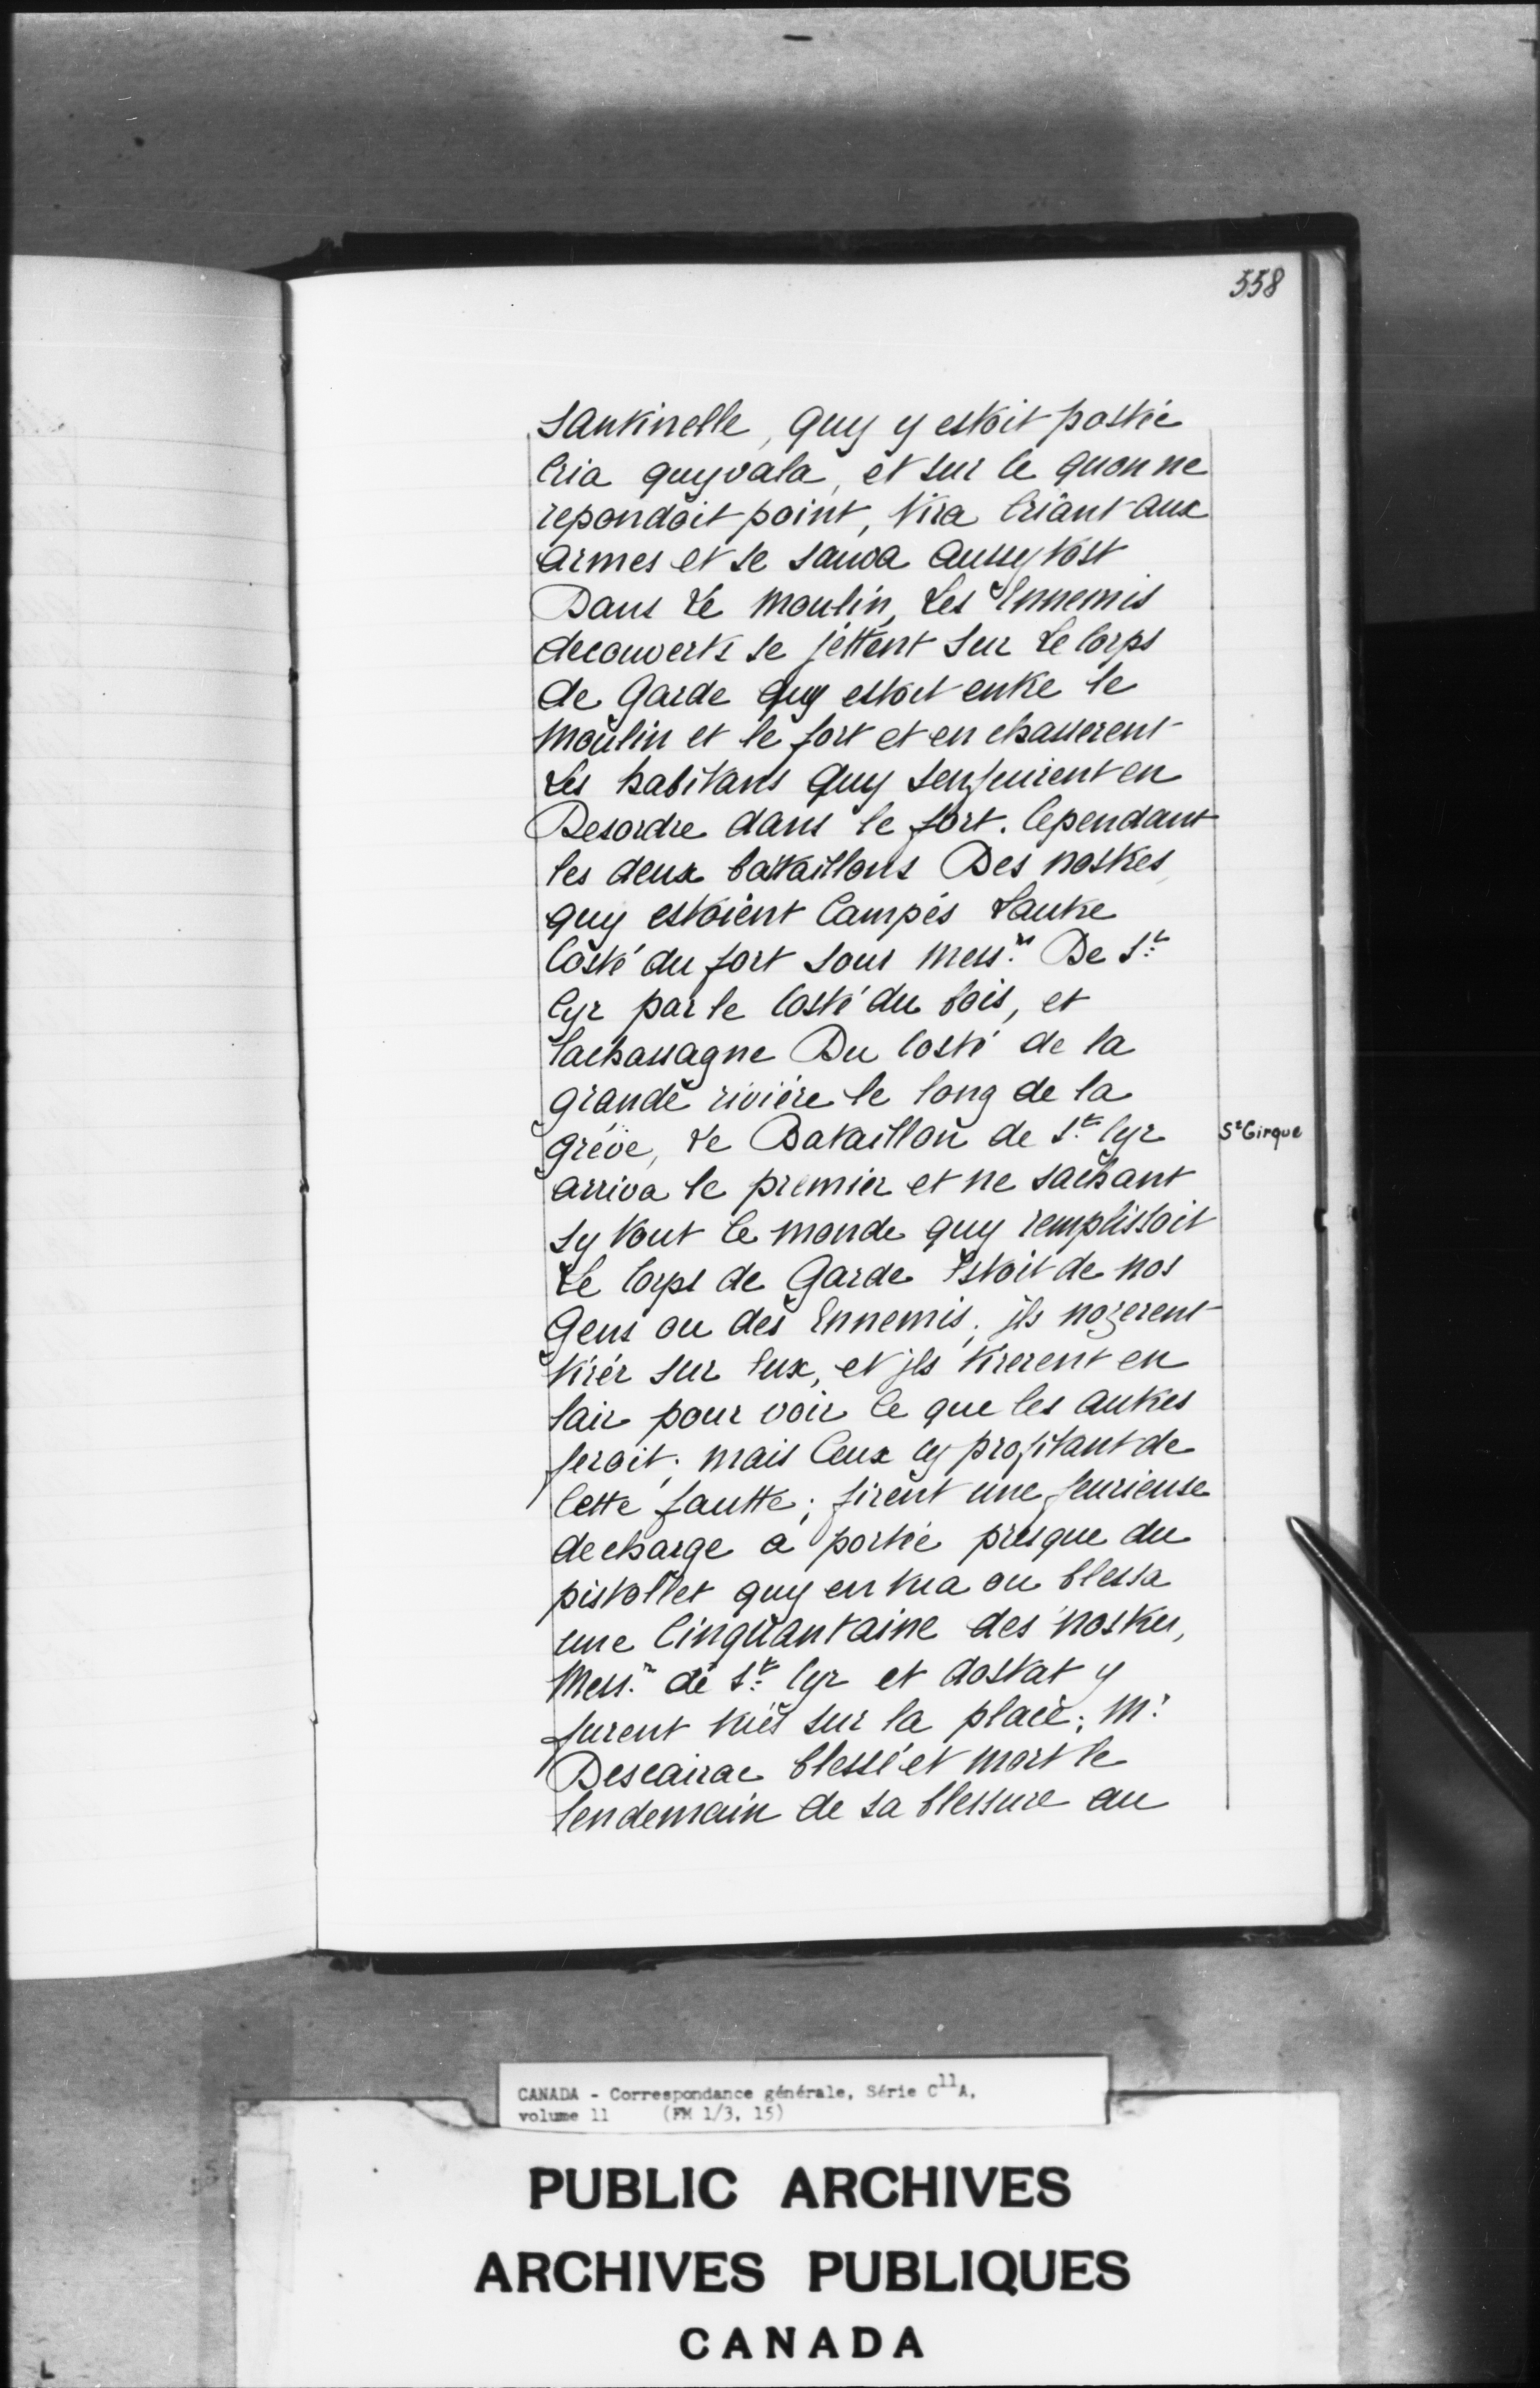 558
santinelle, quy y estoit postée
Cria quyvala, et sur ce quon ne
repondoit point, tira Criant aux
armes et se sauva aussytost
Dans Le moulin, Les Ennemis
decouverts se jettent sur Le Corps
de Garde quy estoit entre le
moulin et le fort et en chasserent
Les habitans quy senfuirent en
Desordre dans le fort. Cependant
les deux bataillons Des nostres
quy estoient Campés Lautre
Costé du fort sous Mess.rs De S.t
Cyr par le Costé du bois, et
Lachassagne Du Costé de la
grande rivière le long de la
grève, Le Bataillon de S.t Cyr
St Cirque
arriva le premier et ne sachant
sy tout le monde quy remplissoit
Le Corps de Garde Estoit de nos
Gens ou des Ennemis, jls nozerent
tirér sur Eux, et jls tirerent en
lair pour voir Ce que les autres
feroit; mais Ceux cy profitant de
Cette fautte; firent une feurieuse
decharge à portée presque du
pistollet quy en tua ou blessa
une Cinquantaine des nostres,
Mess.rs de S.t Cyr et dostat y
furent tués sur la place; M.r
Descairac blessé et mort le
lendemain de sa blessure au
CANADA - Correspondance générale, Série C11A,
volume 11 (FM 1/3, 15)
PUBLIC ARCHIVES
ARCHIVES PUBLIQUES
CANADA